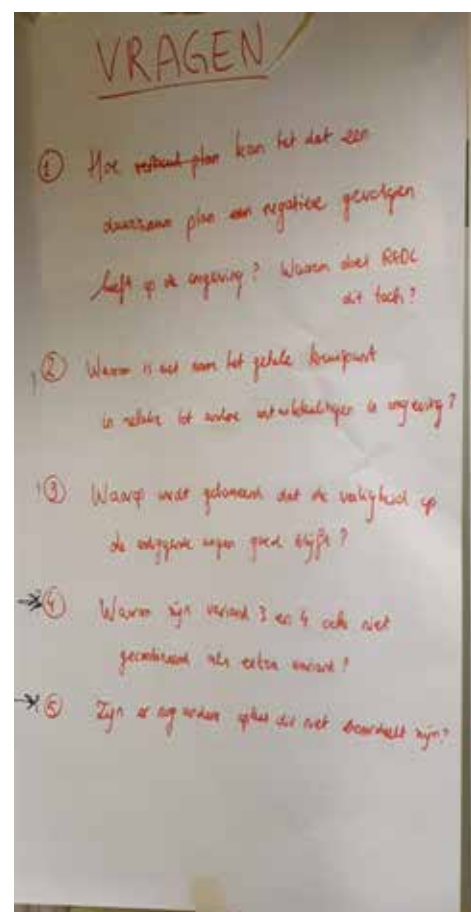 VRAGEN
① Hoe plan kan het dat een
duurzaam plan een negatieve gevolgen
heeft op de omgeving? Waarom doet REDC
dit toch?
② Waarom is niet naar het gehele kruispunt
in relatie tot andere ontwikkelingen in omgeving?
③ Waarop wordt gebaseerd dat de veiligheid op
de omliggende wegen goed blijft?
④ Waarom zijn variant 3 en 4 ook niet
gecombineerd als extra variant?
⑤ Zijn er nog andere opties die niet beoordeelt zijn?